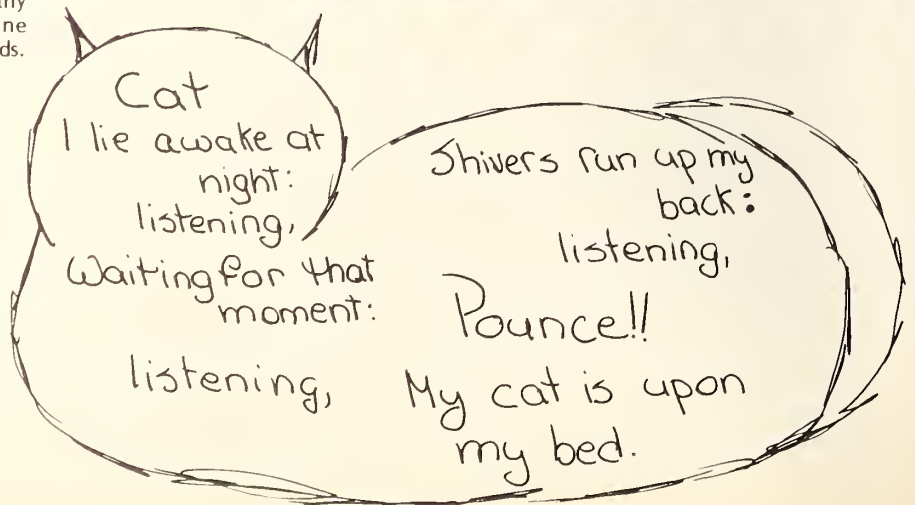 ny
ne
ds.
Cat
I lie awake at
night:
listening,
Waiting for that
moment:
listening,
Shivers run up my
back:
listening,
Pounce!!
My cat is upon
my bed.